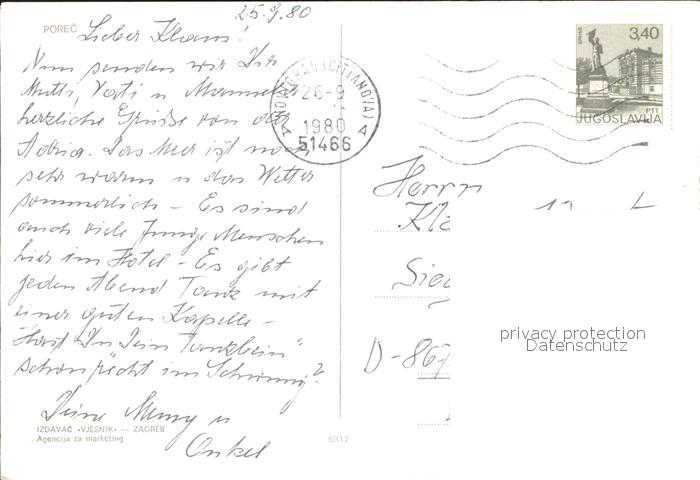 25.9.80
POREČ
Lieber Klaus!
Nun senden wir Dir
Mutti, Vati u Manuela
herzliche Grüße von der
Adria. Das Meer ist noch
sehr warm u das Wetter
sommerlich – Es sind
auch viele junge Menschen
hier im Hotel – Es gibt
jeden Abend Tanz mit
einer guten Kapelle –
Hast Du Dein "Tanzbein"
schon recht im Schwung?
Deine u
Onkel
IZDAVAČ »VJESNIK« — ZAGREB
Agencija za marketing
5312
NOVIGRAD (CITTANOVA)
26-9
1980
51466
3,40
PTT
JUGOSLAVIJA
Herrn
Kla
Sieg
D-867
privacy protection
Datenschutz